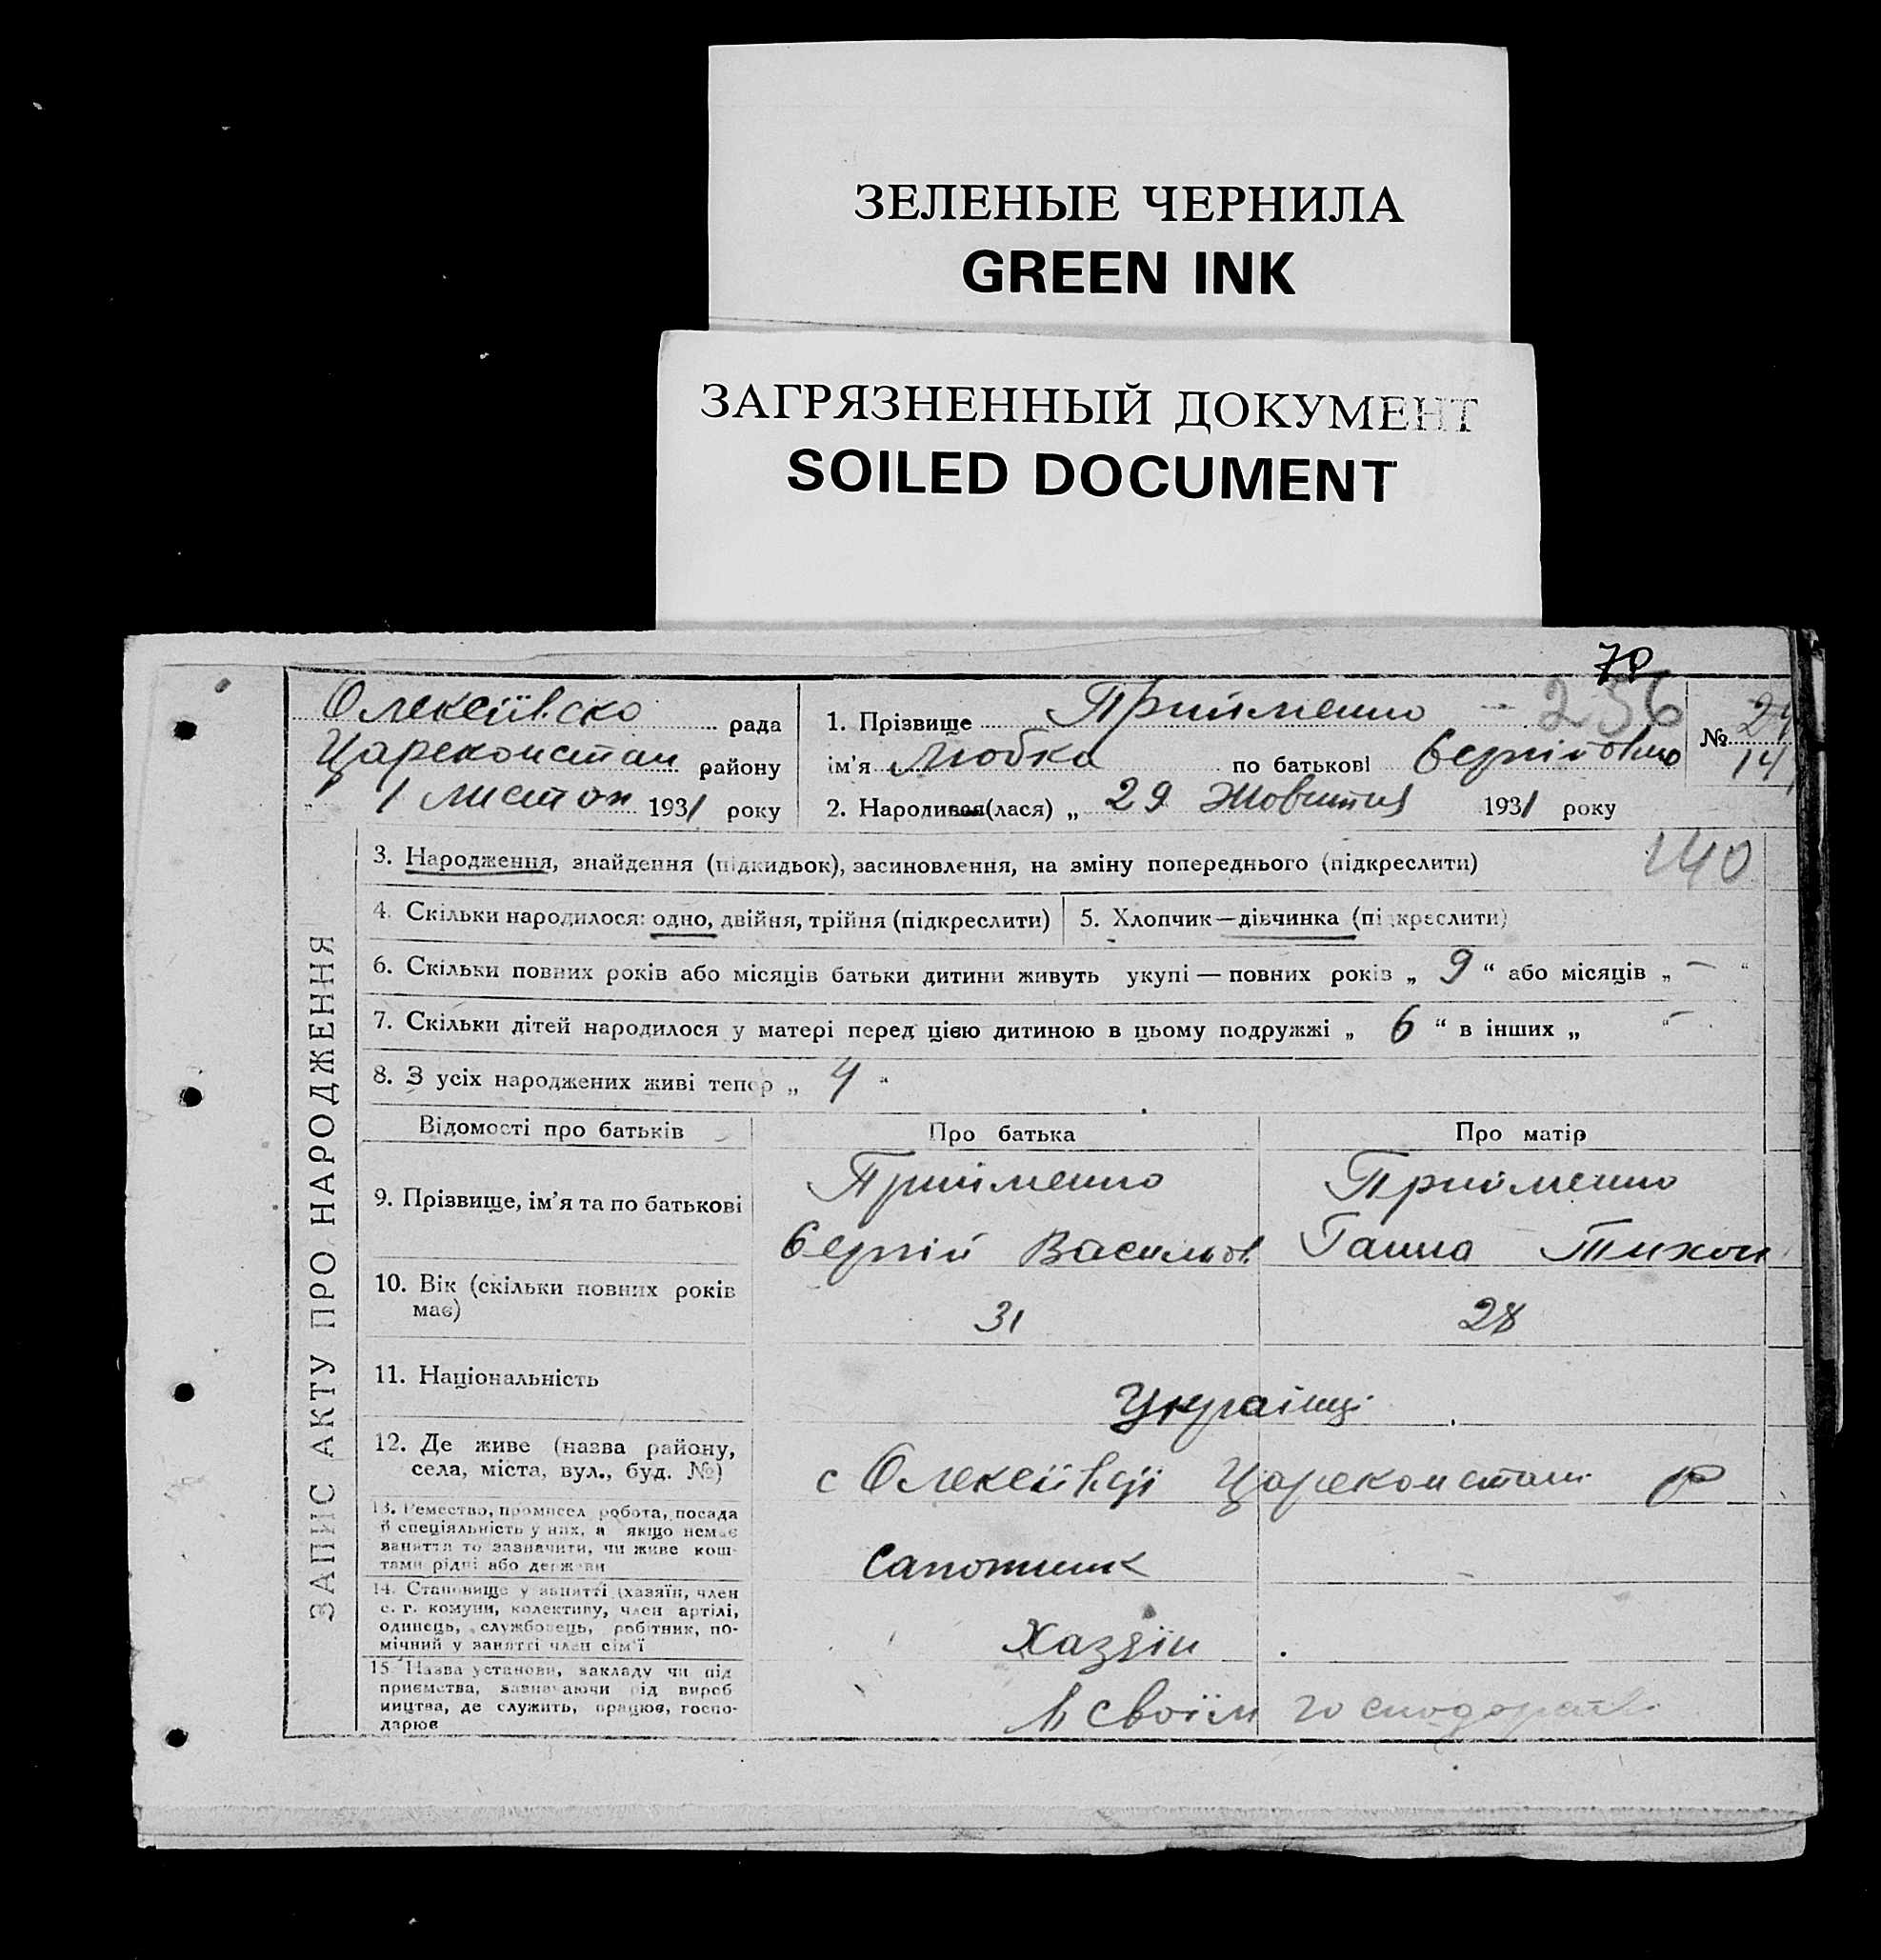 ЗЕЛЕНЫЕ ЧЕРНИЛА
GREEN INK
ЗАГРЯЗНЕННЫЙ ДОКУМЕНТ
SOILED DOCUMENT
70
Олексіївско рада
Цареконстан району
1 листоп 1931 року
1. Прізвище Прийменко 256
ім'я Любка по батькові Сергійовно
2. Народився(лася) „ 29 Жовтня 1931 року
№ 24
14
140
ЗАПИС АКТУ ПРО НАРОДЖЕННЯ
3. Народження, знайдення (підкидьок), засиновлення, на зміну попереднього (підкреслити)
4. Скільки народилося: одно, двійня, трійня (підкреслити) 5. Хлопчик—дівчинка (підкреслити)
6. Скільки повних років або місяців батьки дитини живуть укупі — повних років „ 9 “ або місяців „ — “
7. Скільки дітей народилося у матері перед цією дитиною в цьому подружжі „ 6 “ в інших „ — “
8. З усіх народжених живі тепер „ 4 “
Відомості про батьків Про батька Про матір
9. Прізвище, ім'я та по батькові
Прийменко Прийменко
Сергій Васильов Ганна Тихон
10. Вік (скільки повних років має) 31 28
11. Національність Українці
12. Де живе (назва району, села, міста, вул., буд. №) с Олексіївці Цареконстан р
13. Ремество, промисел робота, посада
й спеціяльність у них, а якщо немає
заняття то зазначити, чи живе кош-
тами рідні або держави
Сапожник
14. Становище у занятті (хазяїн, член
с. г. комуни, колективу, член артілі,
одинець, службовець, робітник, по-
мічний у занятті член сім'ї
Хазяїн
15. Назва установи, закладу чи під
приємства, зазначаючи рід вироб
ництва, де служить, працює, госпо-
дарює
В своїм господарстві